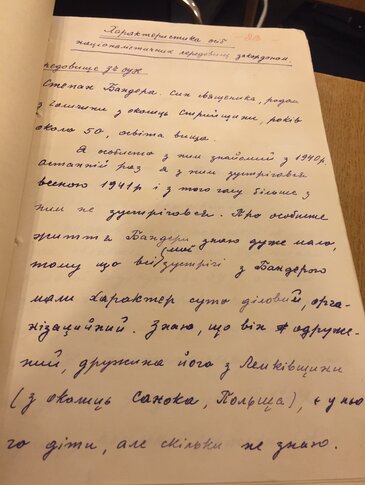 Характеристика осіб
націоналістичних середовищ закордоном.
редовище зч оун
Степан Бандера. Син священика, родом
з Галичини з околиць Стрийщини, років
около 50, освіта вища.
Я особисто з ним знайомий з 1940 р.
Останній раз я з ним зустрічався
весною 1941 р і з того часу більше з
ним не зустрічався. Про особисте
життя Бандери знаю дуже мало,
тому що всі мої зустрічі з Бандерою
мали характер суто діловий, орга-
нізаційний. Знаю, що він одруже-
ний, дружина його з Лемківщини
(з околиць Санока, Польща), є у ньо
го діти, але скільки не знаю.